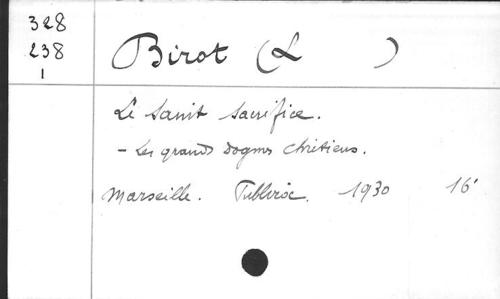 328
238
1
Birot (L )
Le Saint Sacrifice.
- Les grands dogmes chrétiens.
Marseille. Publiroc. 1930 16°